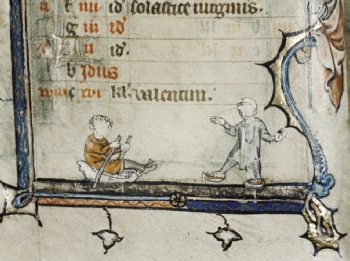 iiii id' solastice uirginis.
g iii id'
ii id'.
b Idus
xvi kl' valentini.